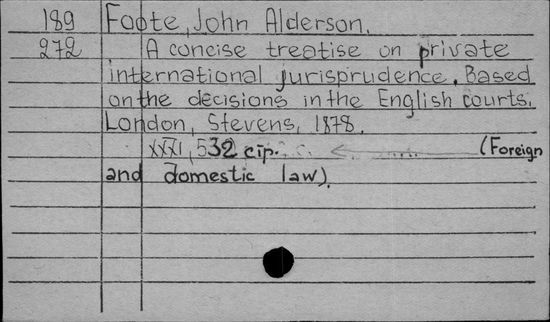 189 Foote, John Alderson.
272 A concise treatise on private
international jurisprudence. Based
on the decisions in the English courts.
London, Stevens, 1878.
XXXI, 532 cтр. (Foreign
and domestic law).